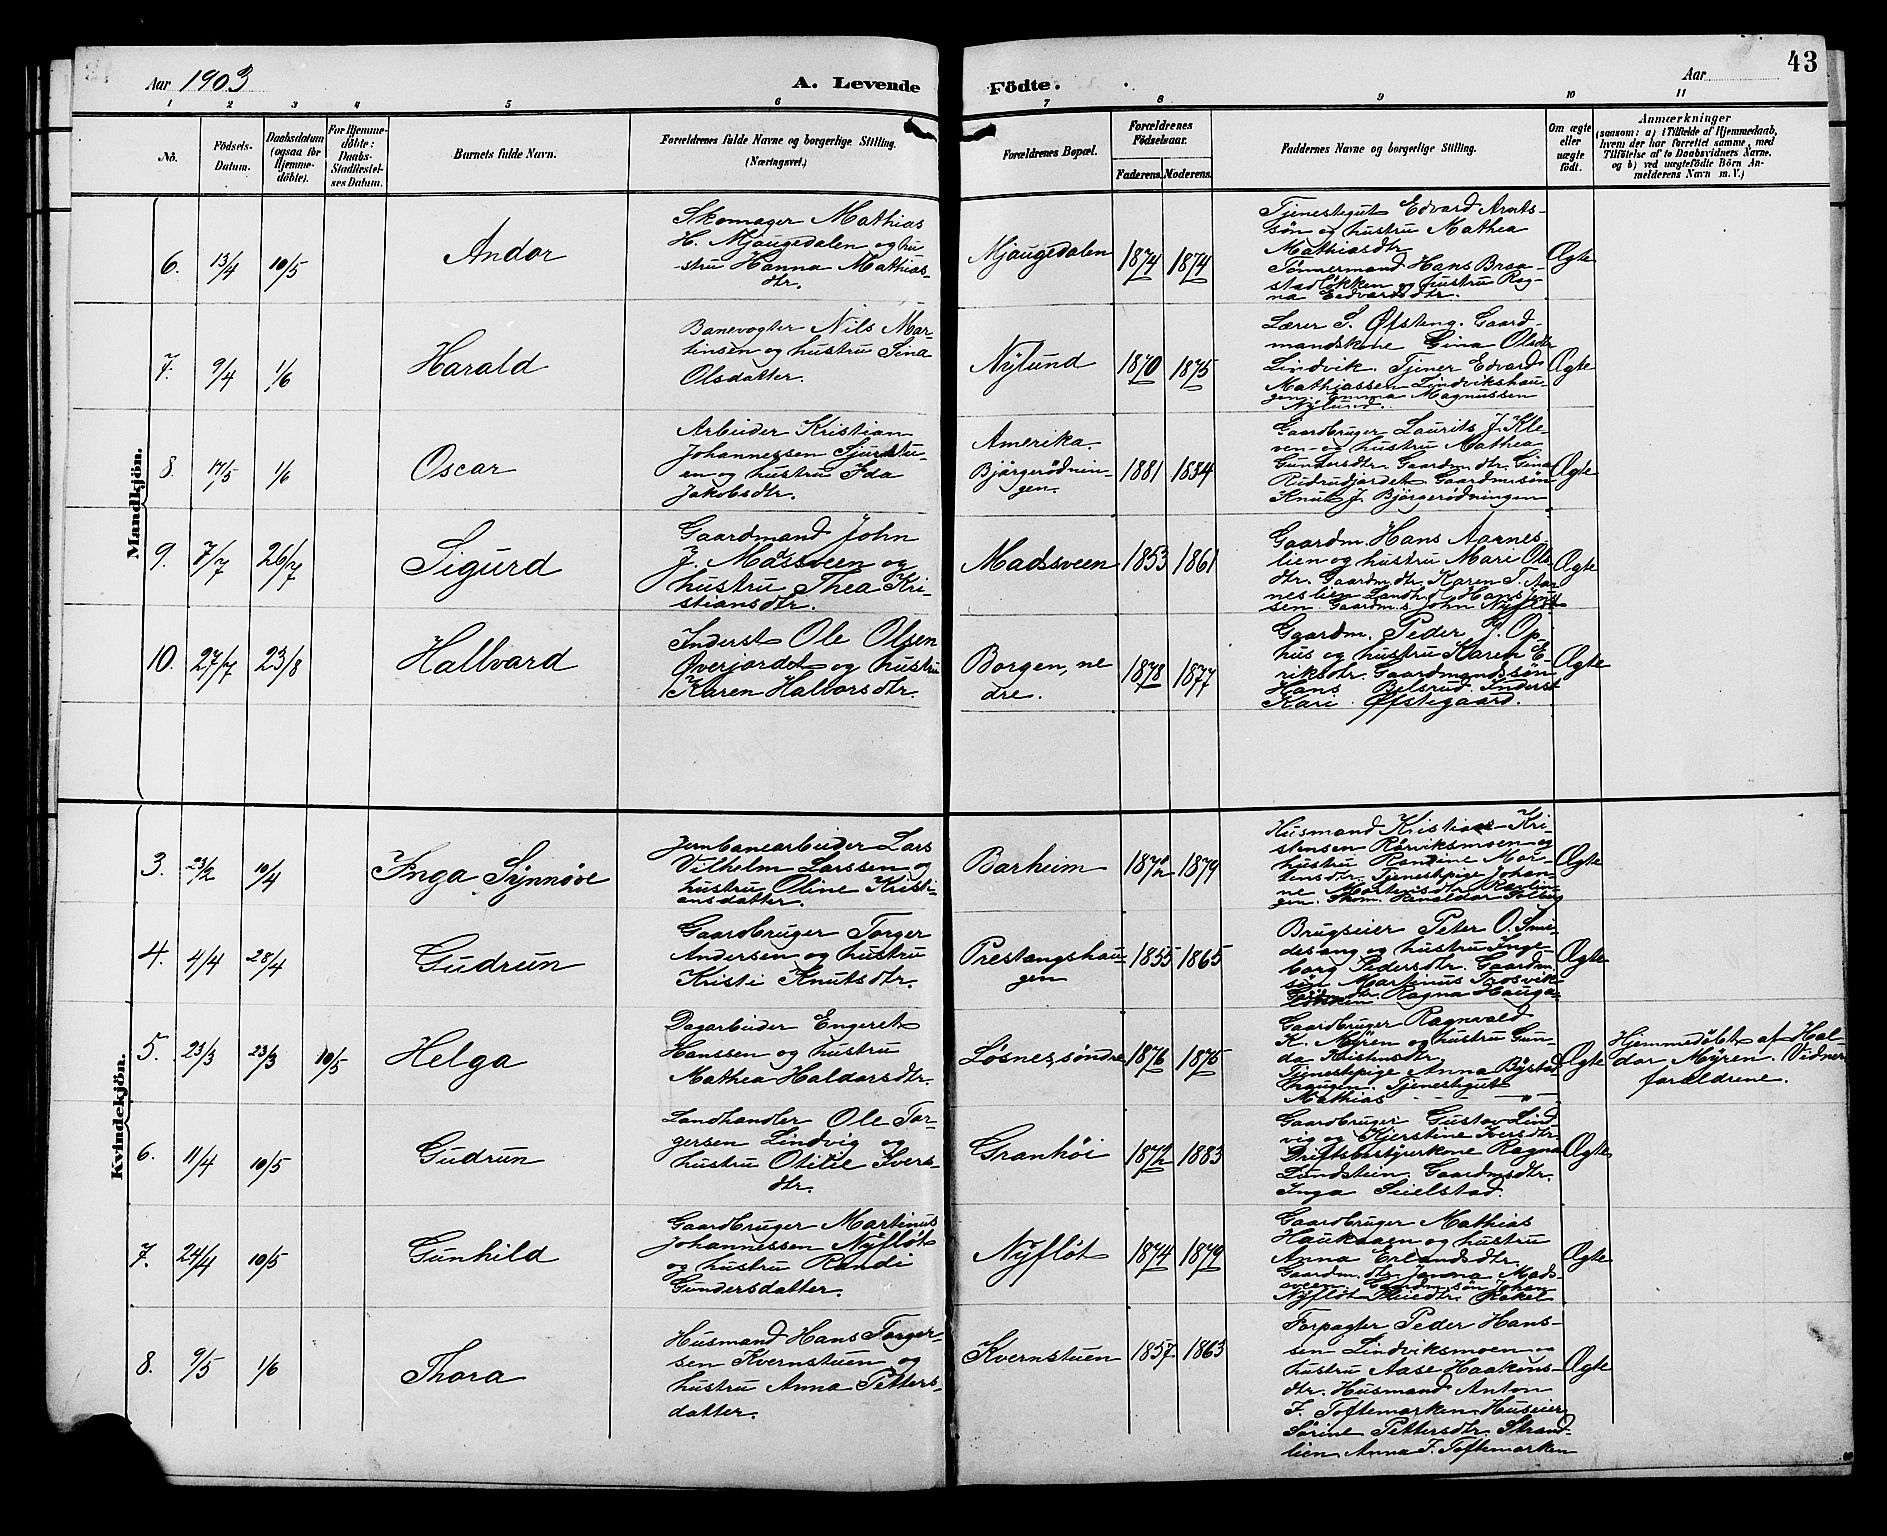 43
Aar 1903
A. Levende
Födte.
Aar
1 2 3 4 5 6 7 8 9 10 11
No.
Födsels-
Datum.
Daabsdatum
(ogsaa for
Hjemme-
döbte).
For Hjemme-
döbte:
Daabs-
Stadfæstel-
ses Datum.
Barnets fulde Navn.
Forældrenes fulde Navne og borgerlige Stilling.
(Næringsvei.)
Forældrenes Bopæl.
Forældrenes
Födselsaar.
Faderens. Moderens.
Faddernes Navne og borgerlige Stilling.
Om ægte
eller
uægte
født.
Anmærkninger
(saasom: a) i Tilfælde af Hjemmedaab,
hvem der har forrettet samme, med
Tilföielse af to Daabsvidners Navne,
og b) ved uægtefödte Börn An-
melderens Navn m. V.)
Mandkjön.
6. 13/4 10/5
Andor
Skomager Mathias
H. Mjaugedalen og hu
stru Hanna Mathias-
dtr.
Mjaugedalen
1874 1874
Tjenestegut Edvard Arnts-
søn og hustru Mathea
Mathiasdtr
Tømmermand Hans Braa-
stadløkken og hustru Rag-
na Edvardsdtr.
Ægte
7. 9/4 1/6
Harald
Banevogter Nils Mar-
tinsen og hustru Sina
Olsdatter.
Nylund
1870 1875
Lærer S. Øfsteng. Gaard-
mandskone Gina Olsdtr
Lindvik. Tjener Edvard
Mathiassen Lindvikshau-
gen. Emma Magnussen
Nylund.
Ægte
8. 17/5 1/6
Oscar
Arbeider Kristian
Johannessen Sjurdstu-
en og hustru Ida
Jakobsdtr.
Amerika.
Bjørgerødnin-
gen.
1881 1884
Gaardbruger Laurits J. Kle-
ven og hustru Mathea
Gundersdtr. Gaardm. dtr. Gina
Rudrudjordet Gaardm. søn
Knut J. Bjørgerødningen
Ægte
9. 7/7 26/7
Sigurd
Gaardmand John
J. Madsveen og
hustru Thea Kri-
stiansdtr.
Madsveen
1853 1861
Gaardm. Hans Aarnes-
lien og hustru Mari Ols
dtr. Gaardm. dtr. Karen T. Aar
neslien Landh. Hans
sen. Gaardm. s. John Nyfløt
Ægte
10. 27/7 23/8
Hallvard
Inderst Ole Olsen
Øverjordet og hustru
Karen Halvorsdtr.
Borgen, ne
dre.
1878 1877
Gaardm. Peder J. Op-
hus og hustru Karen E-
riksdtr. Gaardmandssøn
Hans Belsrud. Inderst
Kari Øfstegaard.
Ægte
Kvindekjön.
3. 23/2 10/4
Inga Synnøve
Jernbanearbeider Lars
Vilhelm Larssen og
hustru Oline Kristi-
ansdatter.
Barheim
1872 1879
Husmand Kristian Kri-
stensen Rørviksmoen og
hustru Randine Mor-
tensdtr. Tjenestepige Johan-
ne Mortensdtr.
gen. Skom. Haraldar Solberg
Ægte
4. 4/4 28/4
Gudrun
Gaardbruger Torger
Andersen og hustru
Kristi Knutsdtr.
Prestangshau-
gen
1855 1865
Brugseier Peter O. Smi-
desang og hustru Inge-
borg Pedersdtr. Gaardm.
søn Martinus Trosvik.
dtr. Ragna Hauga-
Ægte
5. 23/3 23/3 10/5
Helga
Dagarbeider Engeret
Hanssen og hustru
Mathea Haldorsdtr.
Løsnes, søndre
1876 1875
Gaardbruger Ragnvald
K. Myren og hustru Gun-
da
Tjenestepige Anna Bystad-
haugen. Tjenestegut
Mathias - " -
Ægte
Hjemmedøbt af Hal-
dor Myren. Vidner
forældrene.
6. 11/4 10/5
Gudrun
Landhandler Ole Tor-
gersen Lindvig og
hustru Otilie Ivers
dtr.
Granhøi
1872 1883
Gaardbruger Gustav Lind
vig og Kjerstine Iversdtr.
Driftsbestyrerkone Ragna
Lundstein. Gaardmsdtr.
Inga Seielstad.
Ægte
7. 24/4 10/5
Gunhild
Gaardbruger Martinus
Johannessen Nyfløt
og hustru Randi
Gundersdatter.
Nyfløt
1874 1879
Gaardbruger Mathias
Haukaaen og hustru
Anna Erlandsdtr.
Gaardm. dtr. Janna Mads-
veen. Gaardm. søn Johan
Nyfløt Rakel
Ægte
8. 9/5 1/6
Thora
Husmand Hans Torger-
sen Kvernstuen og
hustru Anna Petters-
datter.
Kvernstuen
1857 1863
Forpagter Peder Hans-
sen Lindviksmoen og
hustru Aase Haakons-
dtr. Husmand Anton
F. Toftemarken Huseier
Sørine Pettersdtr. Strand-
lien, Anna F. Toftemarken
Ægte